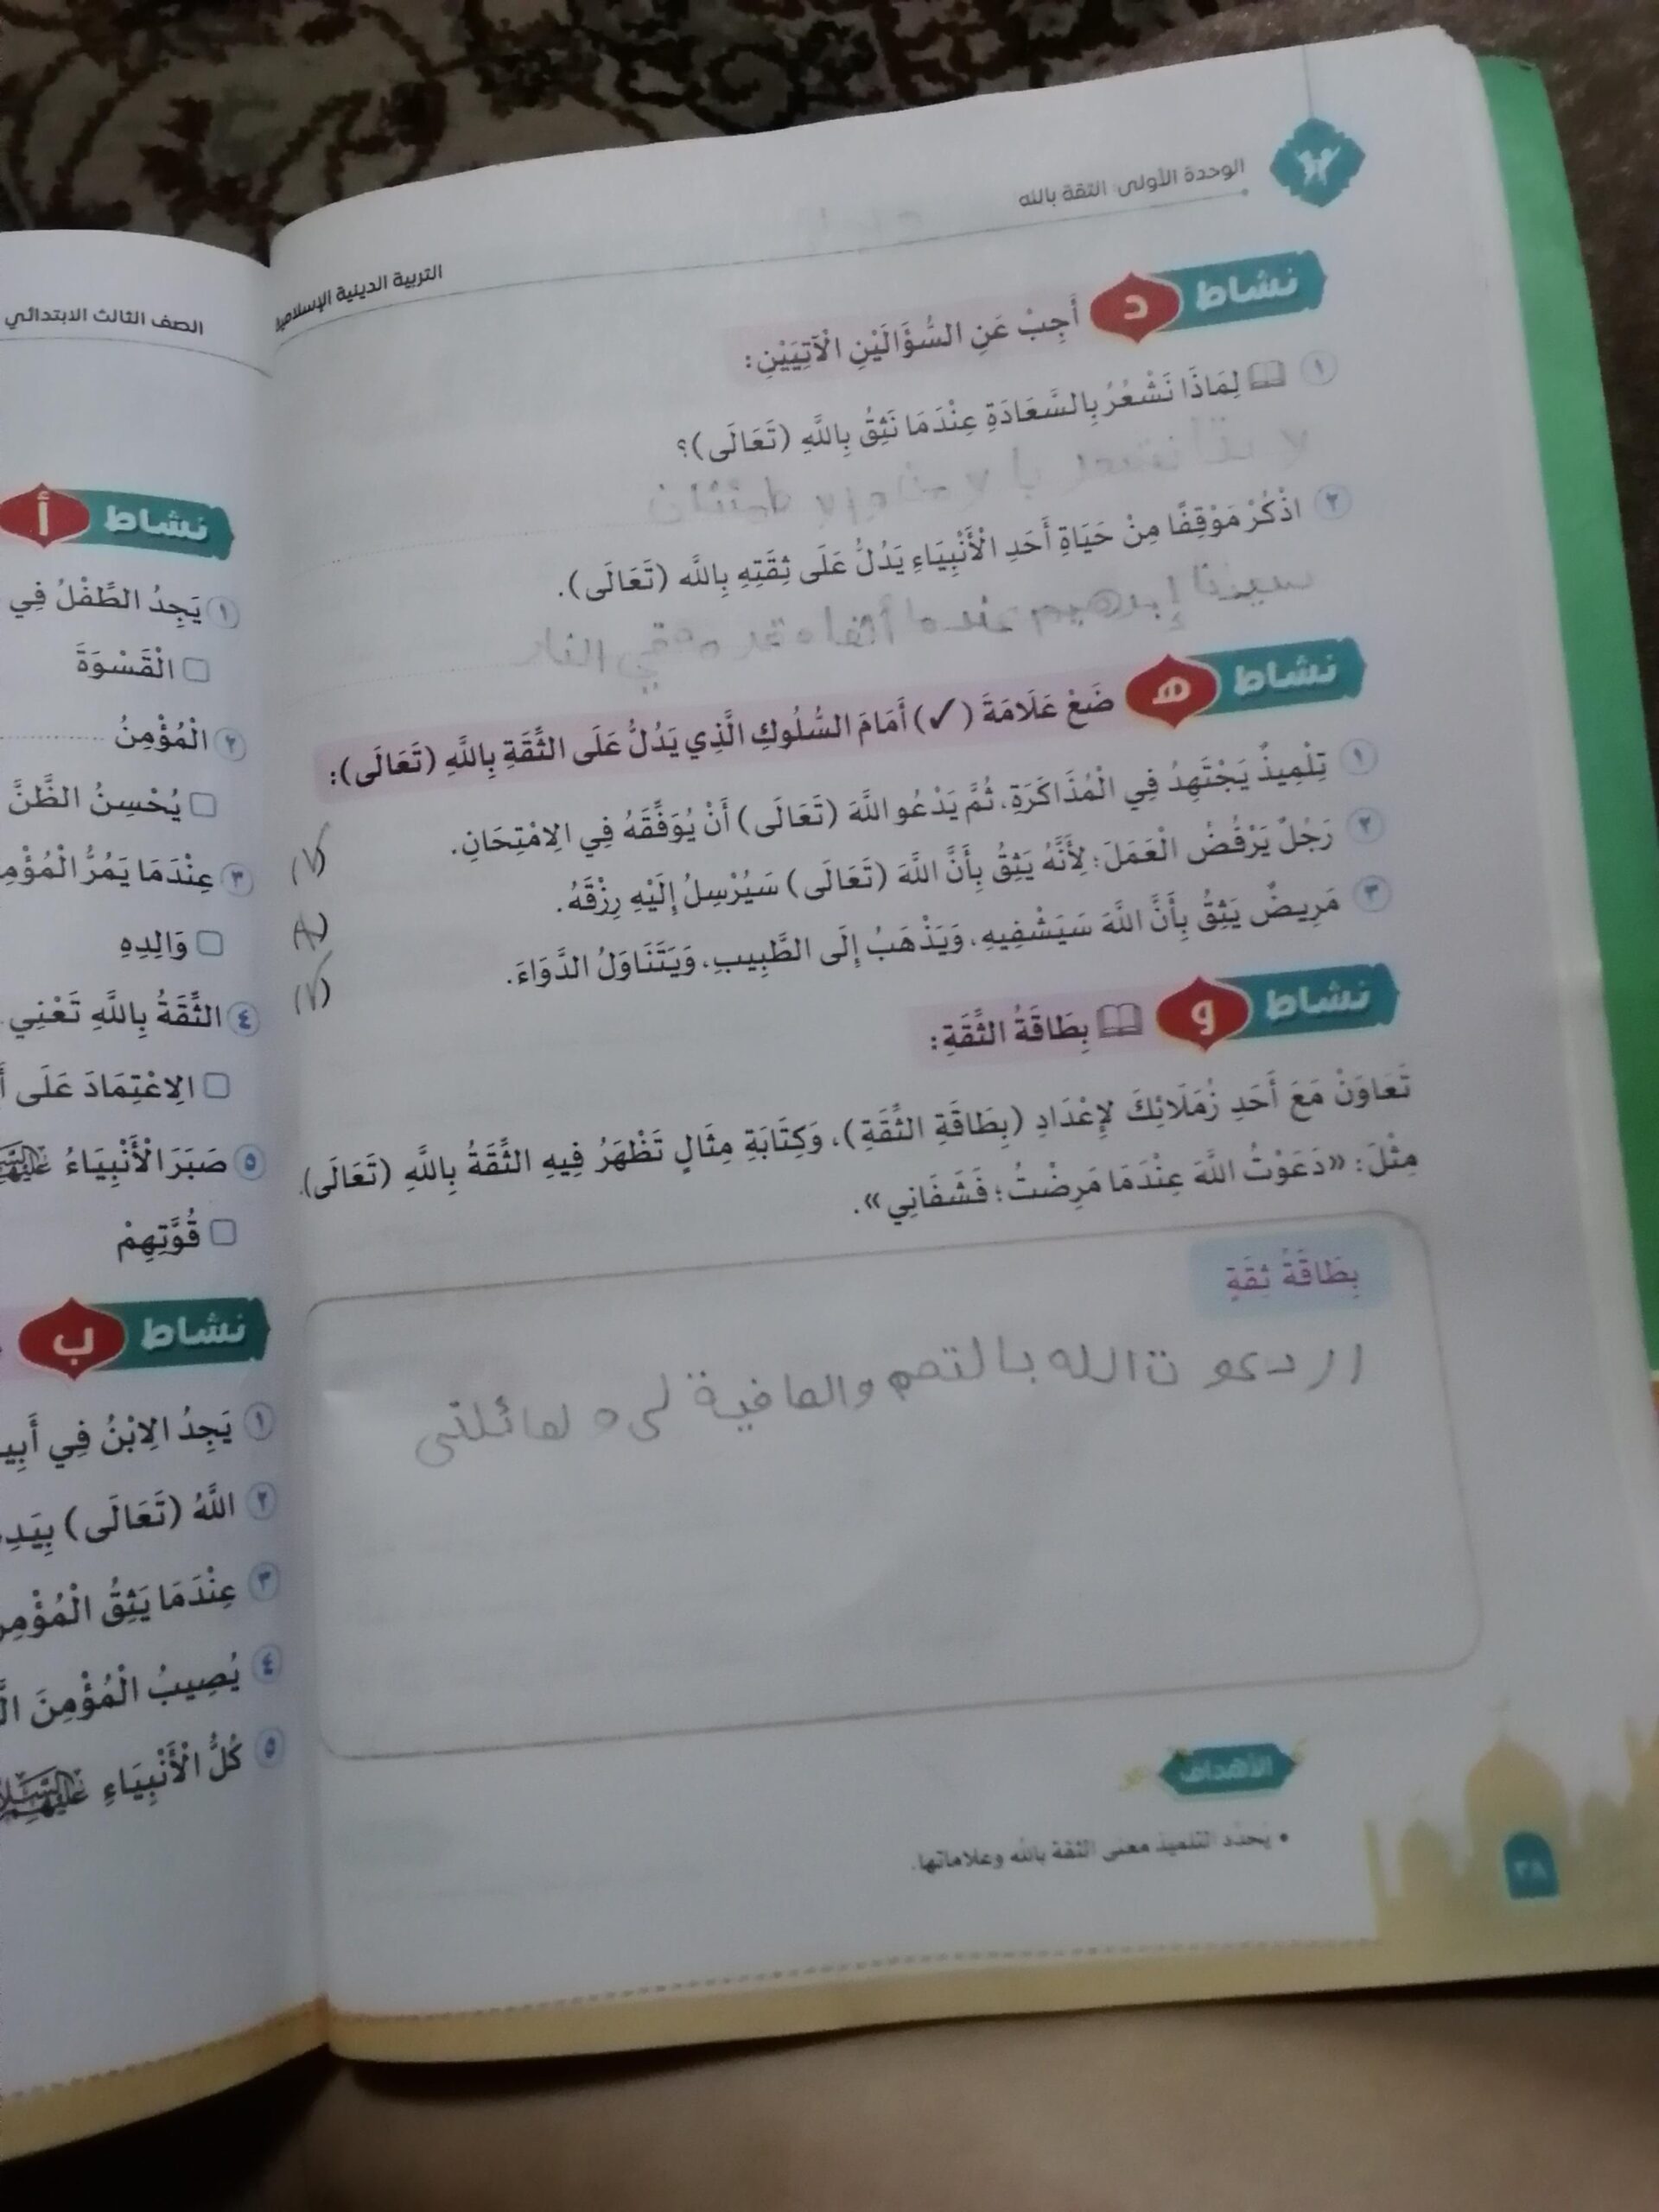 الوحدة الأولى: الثقة بالله
التربية الدينية الإسلامية
نشاط د أَجِبْ عَنِ السُّؤَالَيْنِ الْآتِيَيْنِ:
١ لِمَاذَا نَشْعُرُ بِالسَّعَادَةِ عِنْدَمَا نَثِقُ بِاللَّهِ (تَعَالَى)؟
٢ اذْكُرْ مَوْقِفًا مِنْ حَيَاةِ أَحَدِ الْأَنْبِيَاءِ يَدُلُّ عَلَى ثِقَتِهِ بِاللَّه (تَعَالَى).
سيدنا إبرهيم في النار
نشاط هـ ضَعْ عَلَامَةَ (✓) أَمَامَ السُّلُوكِ الَّذِي يَدُلُّ عَلَى الثِّقَةِ بِاللَّهِ (تَعَالَى):
١ تِلْمِيذٌ يَجْتَهِدُ فِي الْمُذَاكَرَةِ، ثُمَّ يَدْعُو اللَّهَ (تَعَالَى) أَنْ يُوَفِّقَهُ فِي الِامْتِحَانِ.
٢ رَجُلٌ يَرْفُضُ الْعَمَلَ؛ لِأَنَّهُ يَثِقُ بِأَنَّ اللَّهَ (تَعَالَى) سَيُرْسِلُ إِلَيْهِ رِزْقَهُ.
٣ مَرِيضٌ يَثِقُ بِأَنَّ اللَّهَ سَيَشْفِيهِ، وَيَذْهَبُ إِلَى الطَّبِيبِ، وَيَتَنَاوَلُ الدَّوَاءَ.
نشاط و بِطَاقَةُ الثِّقَةِ:
تَعَاوَنْ مَعَ أَحَدِ زُمَلَائِكَ لِإِعْدَادِ (بِطَاقَةِ الثِّقَةِ)، وَكِتَابَةِ مِثَالٍ تَظْهَرُ فِيهِ الثِّقَةُ بِاللَّهِ (تَعَالَى).
مِثْلَ: «دَعَوْتُ اللَّهَ عِنْدَمَا مَرِضْتُ؛ فَشَفَانِي».
بِطَاقَةُ ثِقَةٍ
الله والعافية لى و لعائلتى
الأهداف
• يُحدِّد التلميذ معنى الثقة بالله وعلاماتها.
٣٨
الصف الثالث الابتدائي
نشاط أ
١ يَجِدُ الطِّفْلُ فِي
الْقَسْوَةَ
٢ الْمُؤْمِنُ
يُحْسِنُ الظَّنَّ
٣ عِنْدَمَا يَمُرُّ
وَالِدِهِ
٤ الثِّقَةُ بِاللَّهِ تَعْنِي
الِاعْتِمَادَ عَلَى
٥ صَبَرَ الْأَنْبِيَاءُ
قُوَّتِهِمْ
نشاط ب
١ يَجِدُ الِابْنُ فِي
٢ اللَّهُ (تَعَالَى)
٣ عِنْدَمَا يَثِقُ
٤ يُصِيبُ الْمُؤْمِنَ
٥ كُلُّ الْأَنْبِيَاءِ